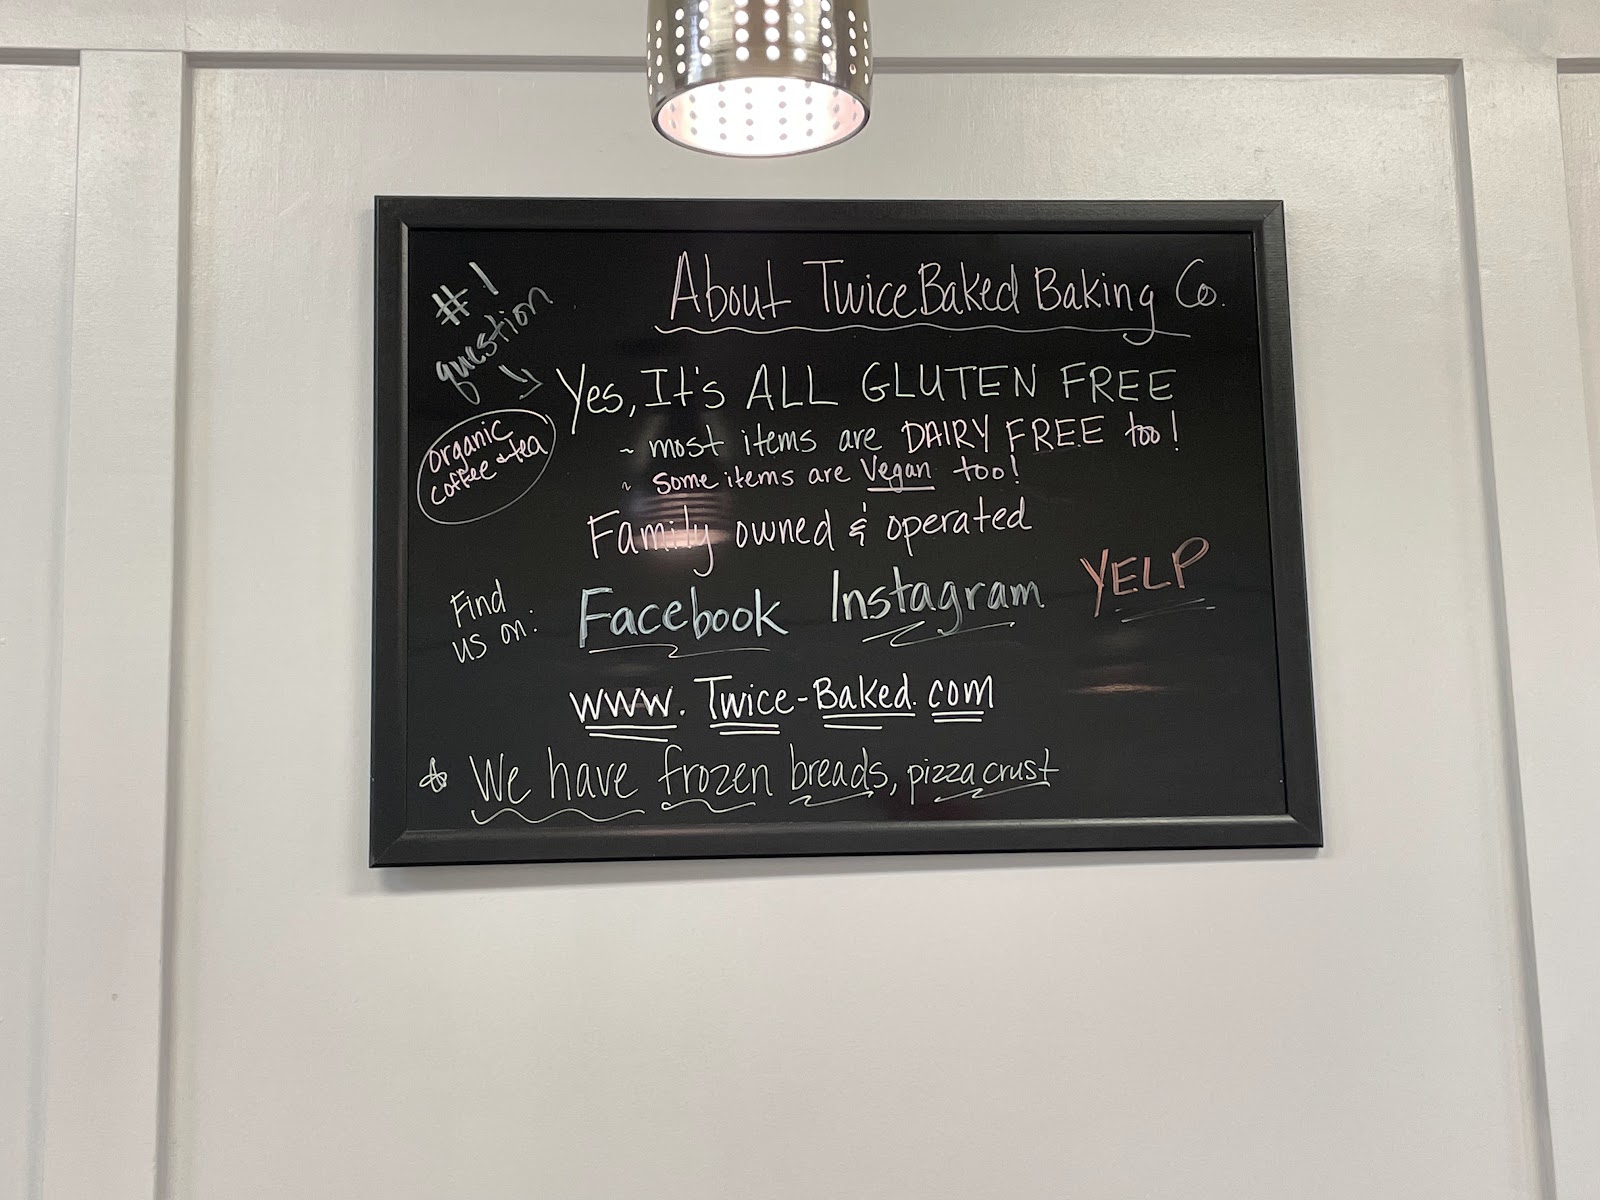 About Twice Baked Baking Co.
#1
question
Yes, It's ALL GLUTEN FREE
organic
coffee & tea
~ most items are DAIRY FREE too!
~ some items are Vegan too!
Family owned & operated
Find
us on:
Facebook Instagram YELP
www.Twice-Baked.com
We have frozen breads, pizza crust